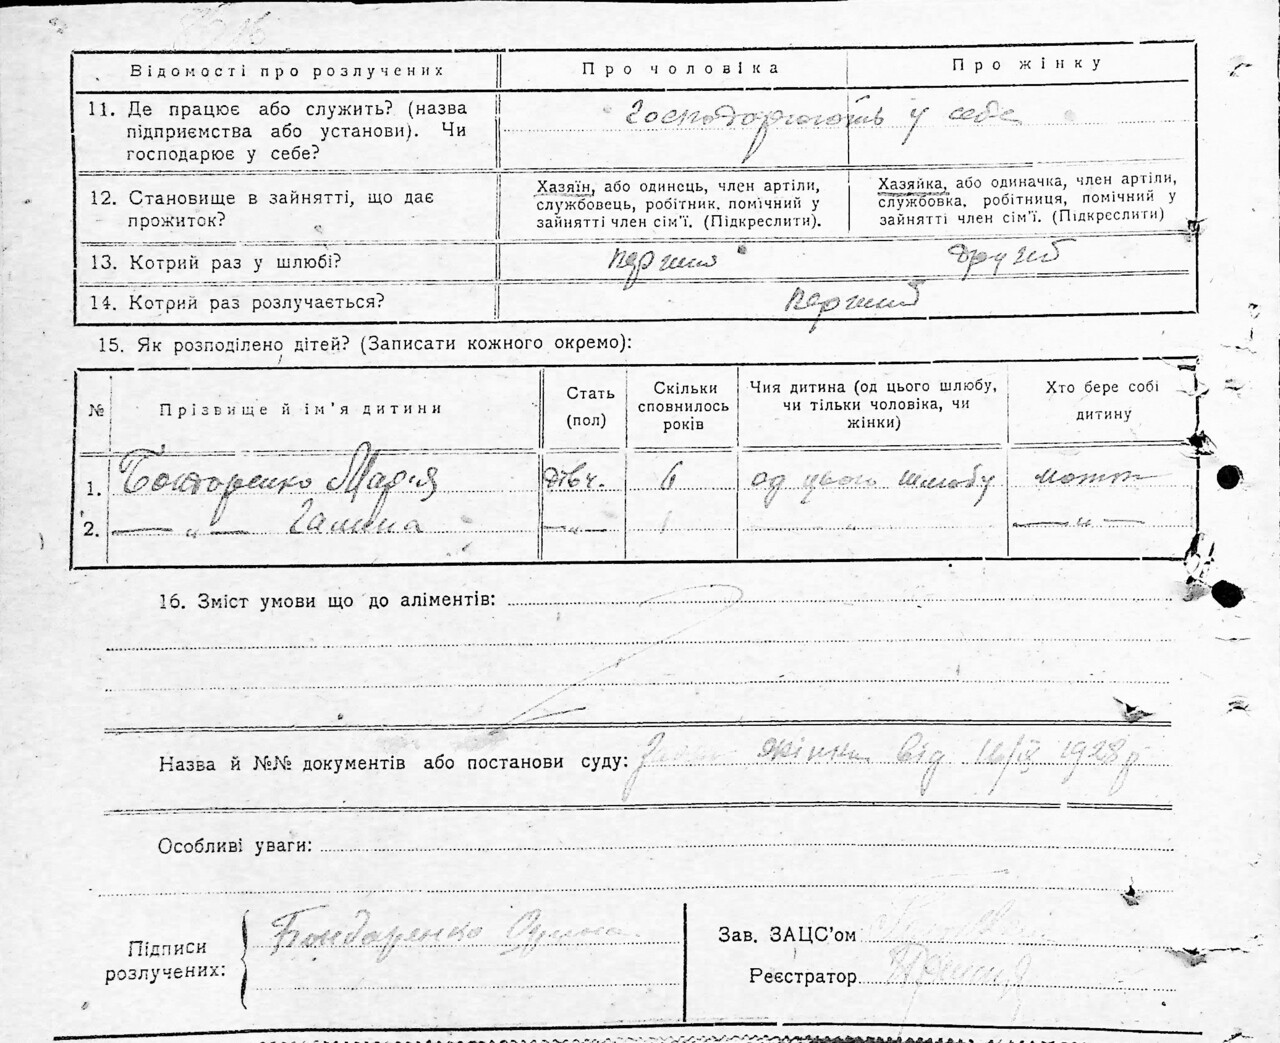 Відомості про розлучених
Про чоловіка
Про жінку
11. Де працює або служить? (назва
підприємства або установи). Чи
господарює у себе?
Господарюють у себе
12. Становище в зайнятті, що дає
прожиток?
Хазяїн, або одинець, член артіли,
службовець, робітник, помічний у
зайнятті член сім'ї. (Підкреслити).
Хазяйка, або одиначка, член артіли,
службовка, робітниця, помічний у
зайнятті член сім'ї. (Підкреслити)
13. Котрий раз у шлюбі?
перший
другий
14. Котрий раз розлучається?
перший
15. Як розподілено дітей? (Записати кожного окремо):
№
Прізвище й ім'я дитини
Стать
(пол)
Скільки
сповнилось
років
Чия дитина (од цього шлюбу,
чи тільки чоловіка, чи
жінки)
Хто бере собі
дитину
1. Бондаренко Марія дівч. 6 од цього шлюбу мати
2. — „ — Галина — „ — 1 „ — „ —
16. Зміст умови що до аліментів:
Назва й №№ документів або постанови суду: Заява жінки від 16/IX 1928 р
Особливі уваги:
Підписи
розлучених:
Бондаренко
Зав. ЗАЦС'ом
Реєстратор